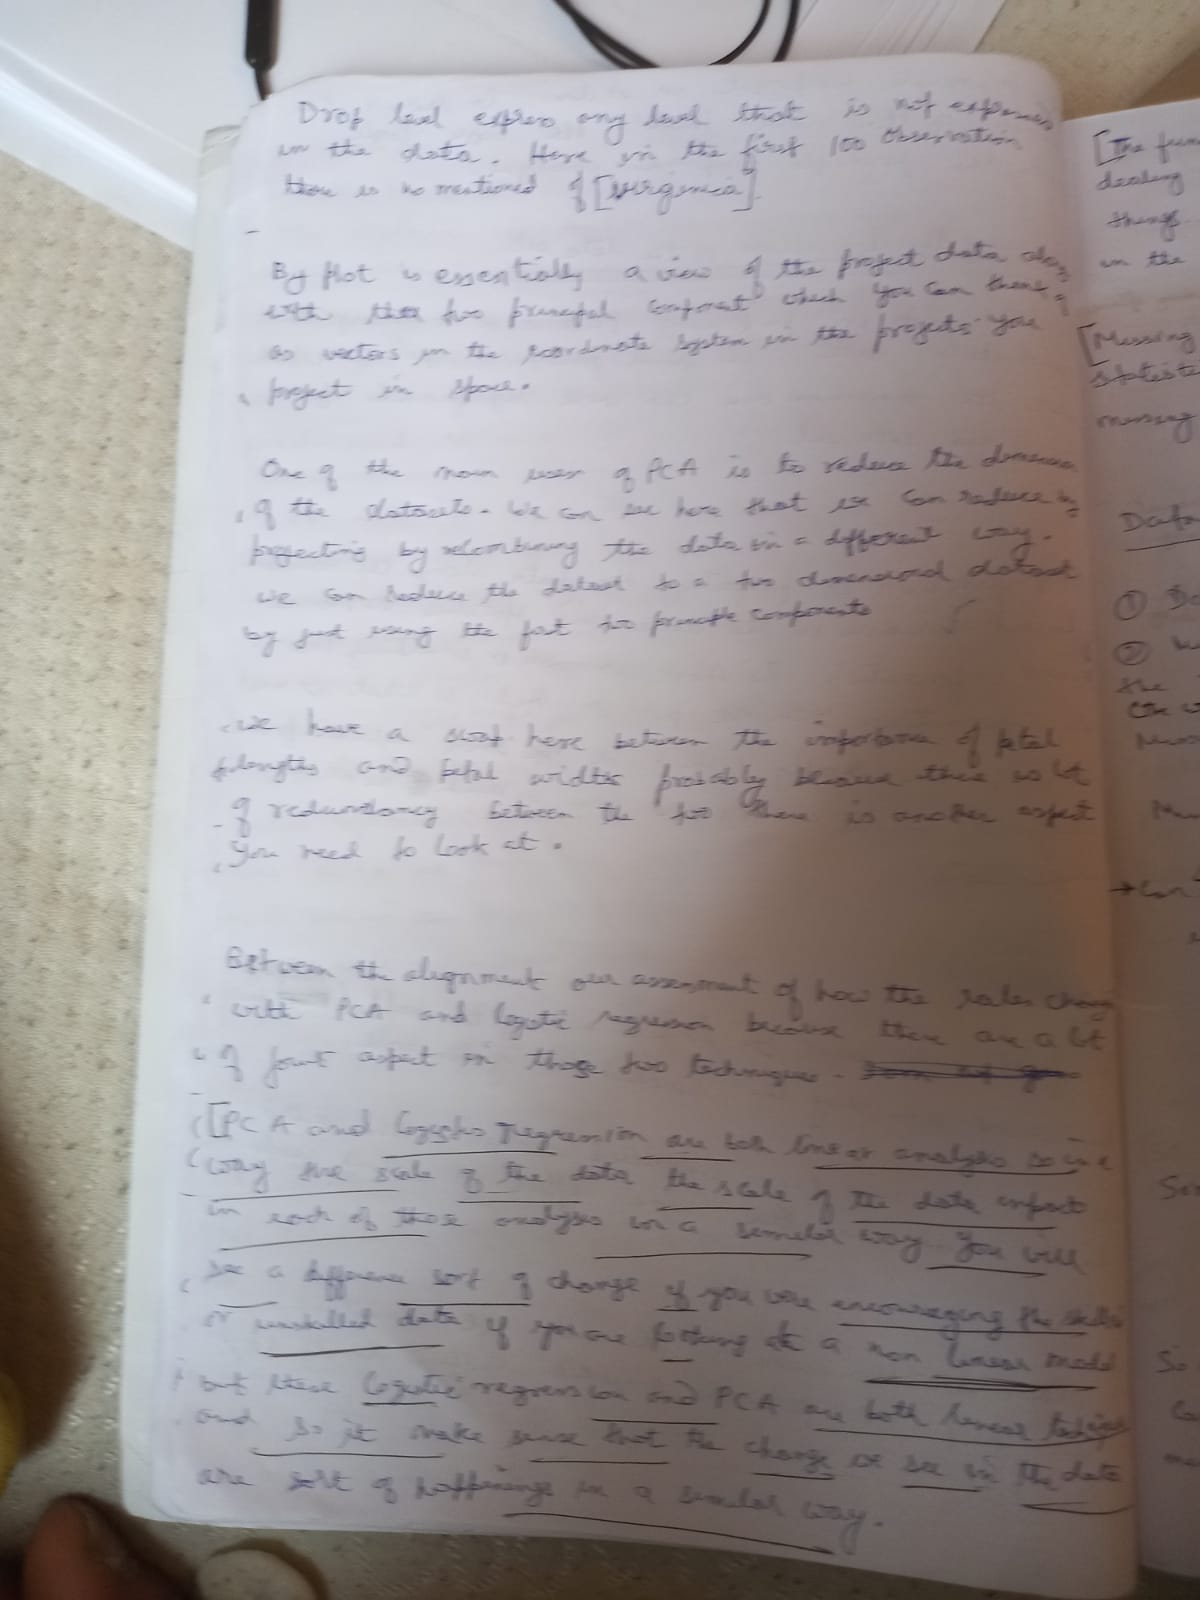 Drop level express any level that is not expresses
in the data. Here in the first 100 Observation
there is no mentioned of [virginica].
By plot is essentially a view of the project data along
with these two principal component which you can think of
as vectors in the coordinate system in the projects you
project in space.
One of the main uses of PCA is to reduce the dimension
of the datasets. We can see here that we can reduce by
projecting by recombining the data in a different way.
we can reduce the dataset to a two dimensional dataset
by just using the first two principle components
we have a swap here between the importance of petal
lengths and petal widths probably because there is lot
of redundancy between the two there is another aspect
you need to look at.
Between the alignment our assessment of how the scales change
with PCA and logistic regression because there are a lot
of joint aspect in those two techniques.
[PCA and logistic regression are both linear analysis so in a
way the scale of the data the scale of the data impact
in each of those analysis in a similar way you will
see a difference sort of change if you were encouraging the
or unskilled data if you are looking at a non linear model
but these logistic regression and PCA are both linear
and so it make sense that the change we see in the data
are sort of happenings in a similar way.
[The
dealing
things
in the
[Missing
missing
Data
①
②
the